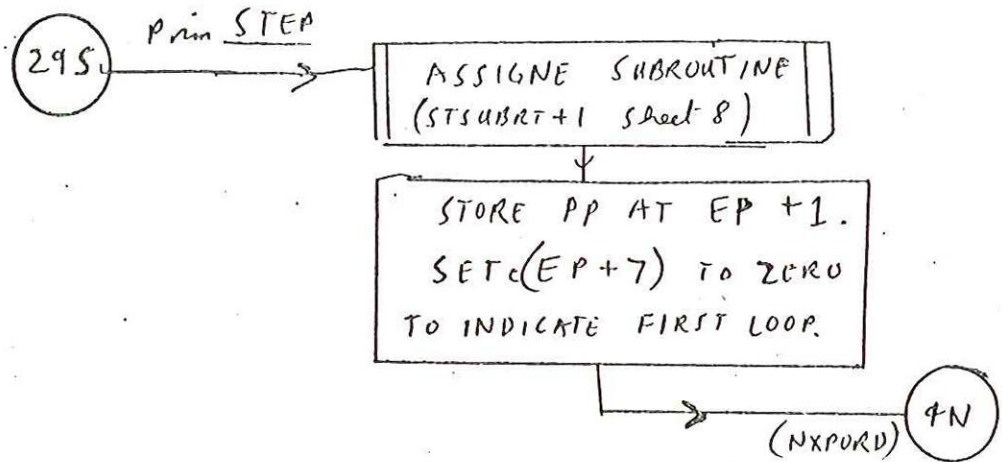 Prim STEP
29S
ASSIGNE SUBROUTINE
(STSUBRT+1 Sheet 8)
STORE PP AT EP +1.
SETc(EP+7) TO ZERO
TO INDICATE FIRST LOOP.
4N
(NXPORD)